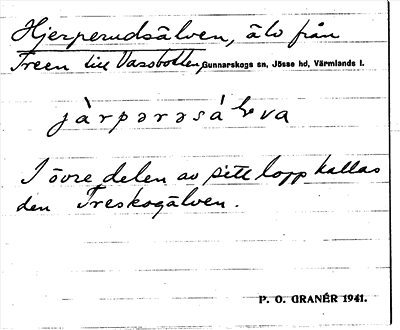 Hjerperudsälven, älv från
Treen till Vassbotten, Gunnarskogs sn, Jösse hd, Värmlands l.
jàrpərəsáḷva
I övre delen av sitt lopp kallas
den Treskogälven.
P. O. GRANÉR 1941.